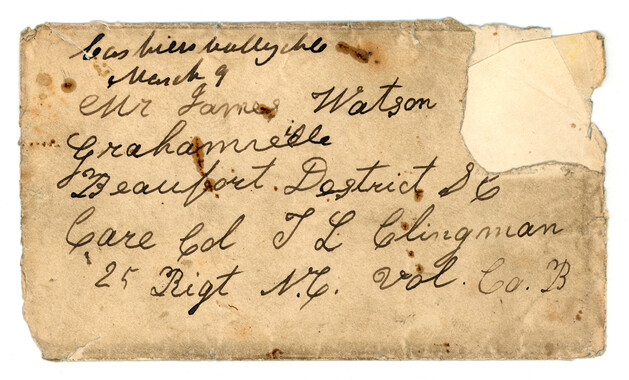 Cashiers valley NC
March 9
Mr James Watson
Grahamville
Beaufort District S C
Care Col T L Clingman
25 Rigt N.C. Vol. Co. B